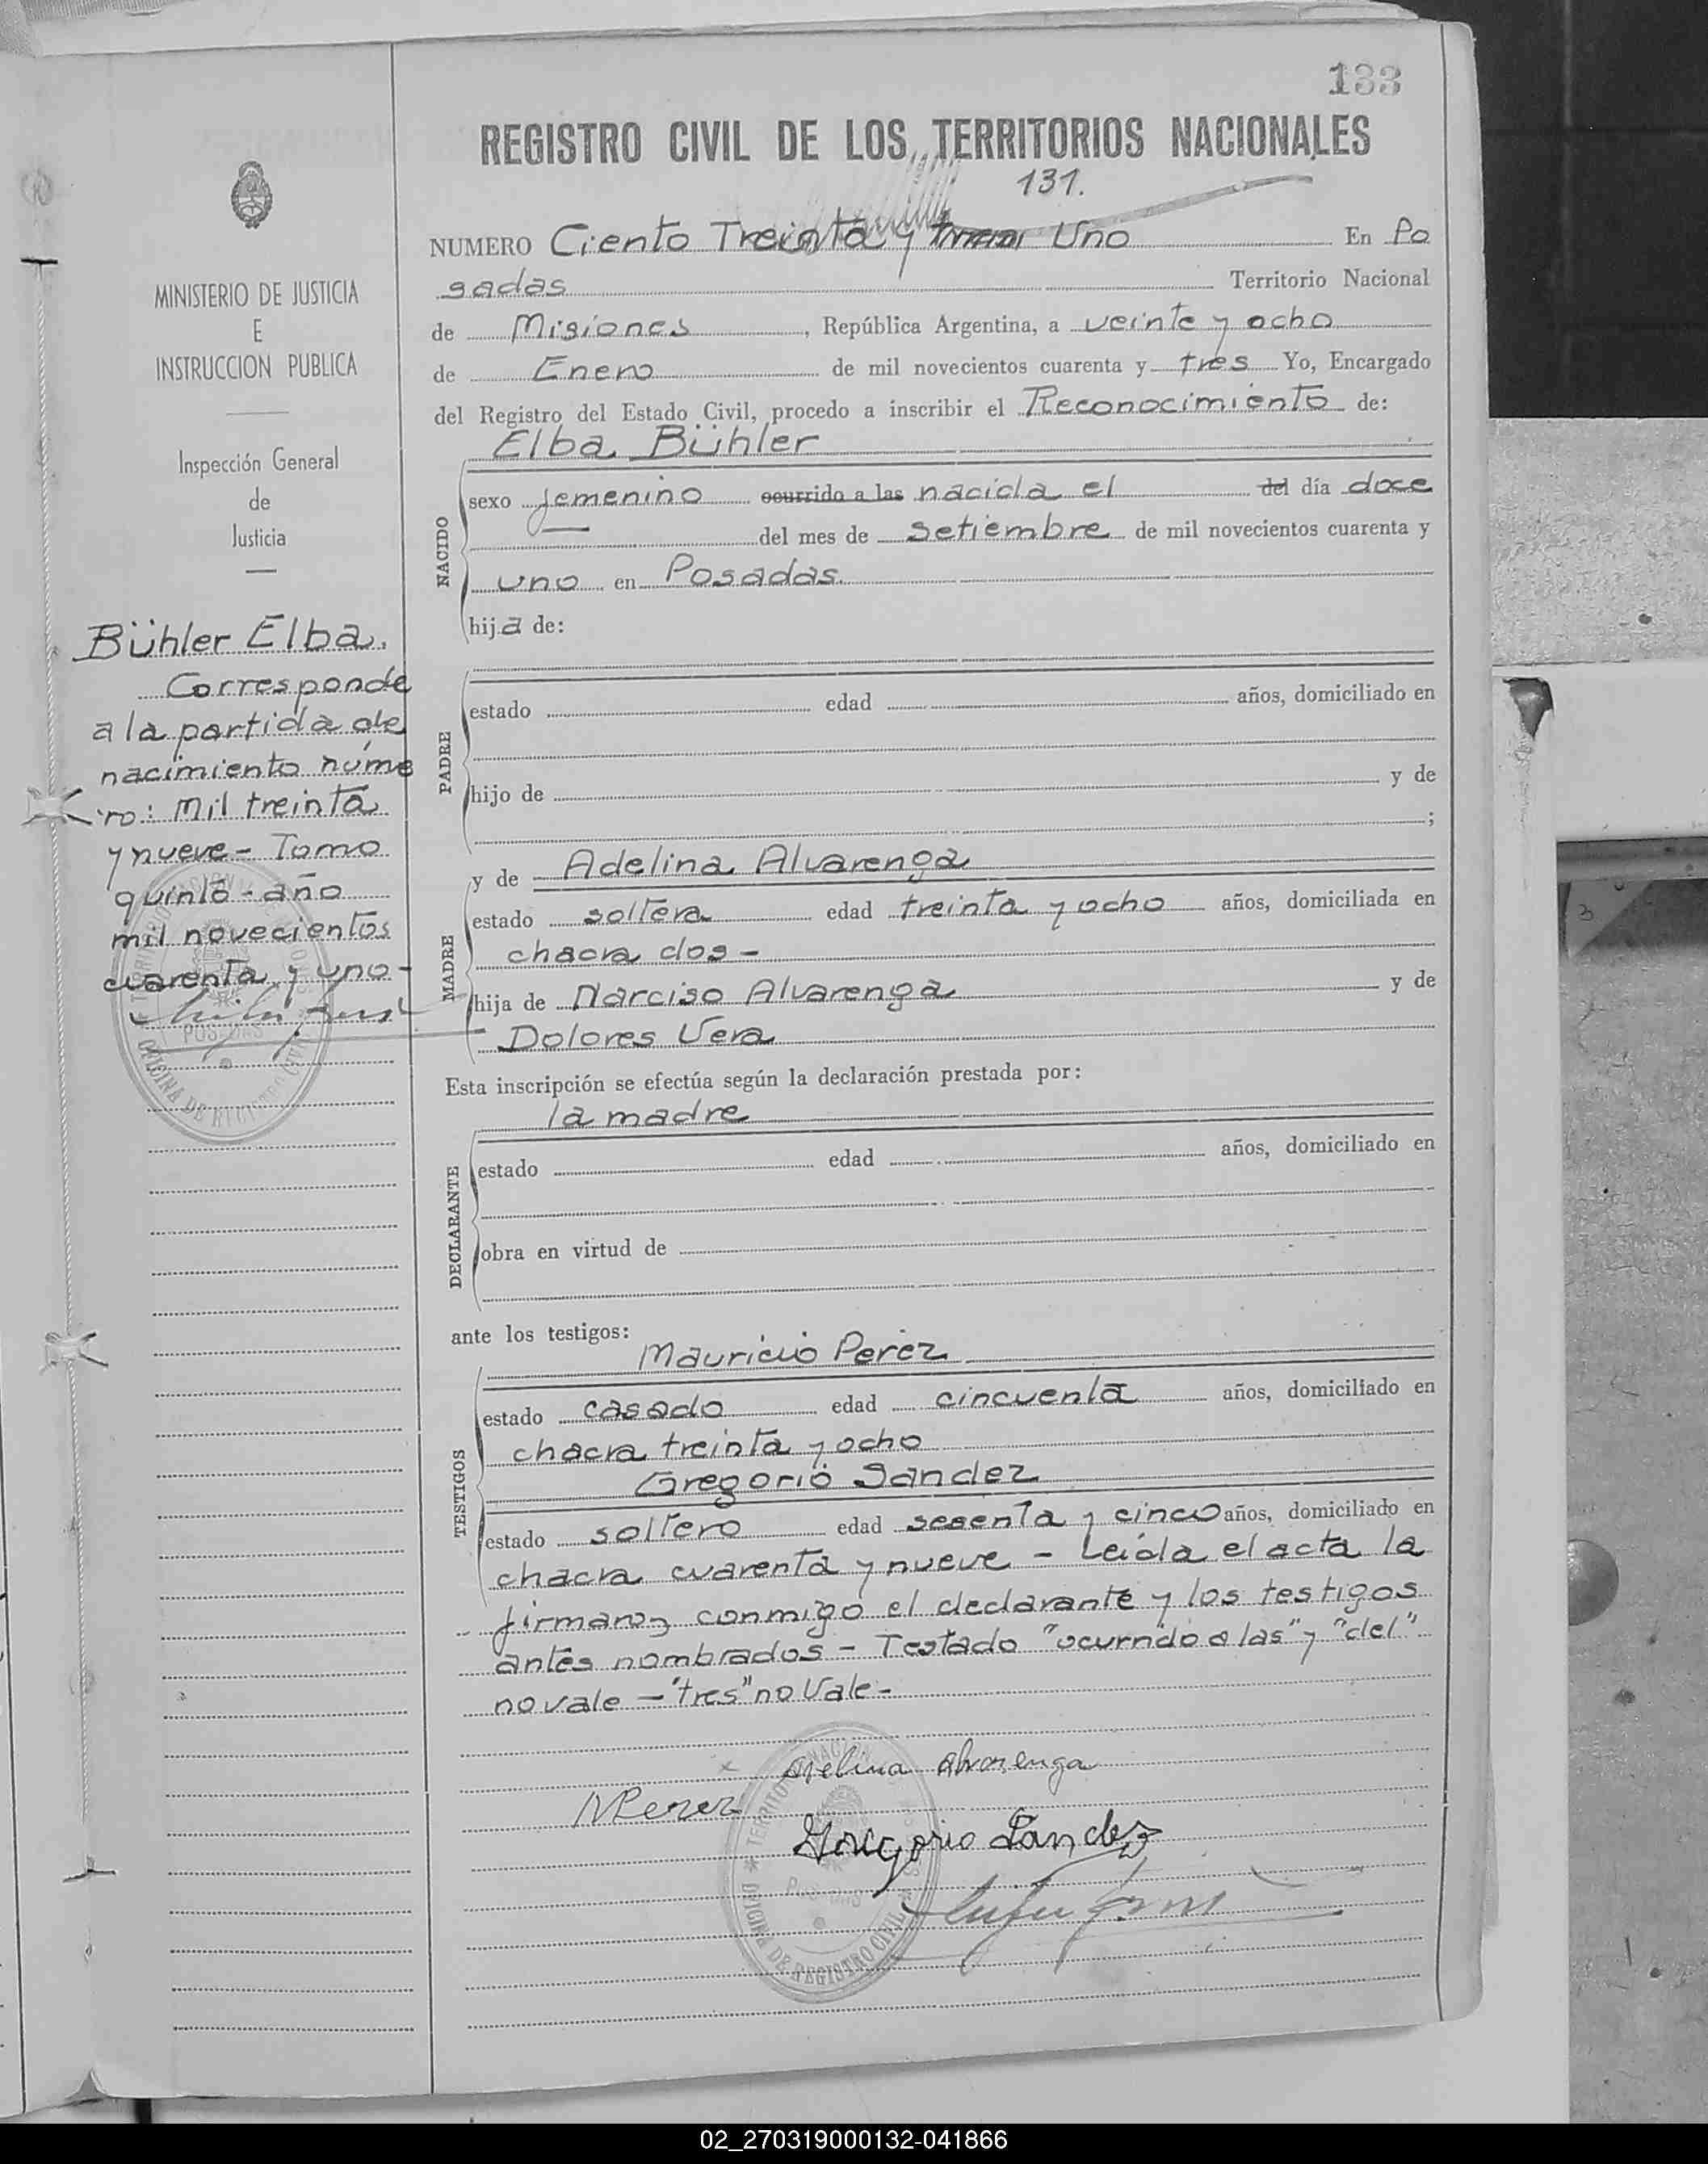 133
REGISTRO CIVIL DE LOS TERRITORIOS NACIONALES
131.
NUMERO Ciento Treinta y tres Uno En Po
sadas Territorio Nacional
de Misiones, República Argentina, a veinte y ocho
de Enero de mil novecientos cuarenta y tres Yo, Encargado
del Registro del Estado Civil, procedo a inscribir el Reconocimiento de:
Elba Bühler
NACIDO
sexo femenino ocurrido a las nacida el del día doce
del mes de setiembre de mil novecientos cuarenta y
uno en Posadas.
hija de:
PADRE
estado edad años, domiciliado en
hijo de y de
;
y de Adelina Alvarenga
MADRE
estado soltera edad treinta y ocho años, domiciliada en
chacra dos -
hija de Narciso Alvarenga y de
Dolores Vera
Esta inscripción se efectúa según la declaración prestada por:
la madre
DECLARANTE
estado edad años, domiciliado en
obra en virtud de
ante los testigos:
Mauricio Perez
TESTIGOS
estado casado edad cincuenta años, domiciliado en
chacra treinta y ocho
Gregorio Sandez
estado soltero edad sesenta y cinco años, domiciliado en
chacra cuarenta y nueve - Leida el acta la
firmaron conmigo el declarante y los testigos
antes nombrados - Testado "ocurrido a las" y "del"
no vale - "tres" no Vale -
Alvarenga
MPerez
Gregorio Sandez
MINISTERIO DE JUSTICIA
E
INSTRUCCION PUBLICA
Inspección General
de
Justicia
Bühler Elba.
Corresponde
a la partida de
nacimiento núme
ro: mil treinta
y nueve - Tomo
quinto - año
mil novecientos
cuarenta y uno -
POSADAS
OFICINA DE REGISTRO CIVIL
TERRITORIO NACIONAL
POSADAS
OFICINA DE REGISTRO CIVIL
3
02_270319000132-041866